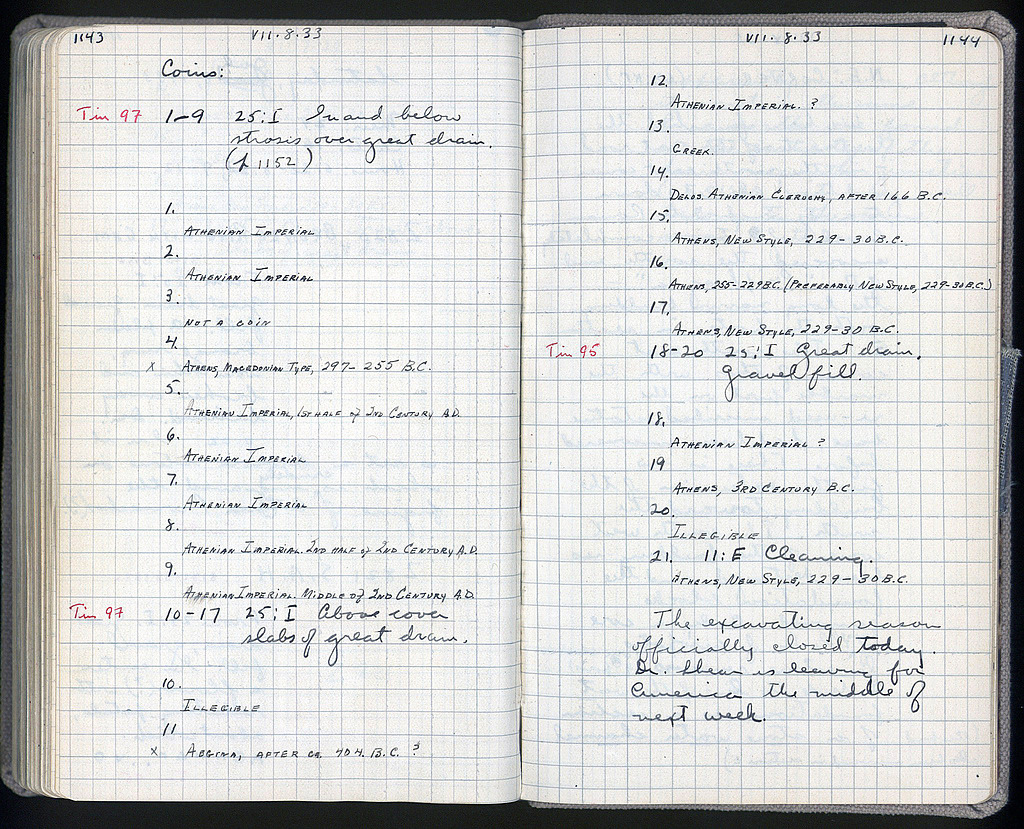 1143
VII. 8. 33
Coins:
Tin 97 1-9 25:I In and below
strosis over great drain.
(p 1152)
1.
ATHENIAN IMPERIAL
2.
ATHENIAN IMPERIAL
3.
NOT A COIN
4.
x ATHENS, MACEDONIAN TYPE, 297- 255 B.C.
5.
ATHENIAN IMPERIAL, 1ST HALF of 2ND CENTURY A.D.
6.
ATHENIAN IMPERIAL
7.
ATHENIAN IMPERIAL
8.
ATHENIAN IMPERIAL. 2ND HALF of 2ND CENTURY A.D.
9.
ATHENIAN IMPERIAL. MIDDLE OF 2ND CENTURY A.D.
Tin 97 10-17 25:I Above cover
slabs of great drain.
10.
ILLEGIBLE
11
x AEGINA, AFTER ca. 404. B.C. ?
VII. 8. 33
1144
12.
ATHENIAN IMPERIAL. ?
13.
GREEK.
14.
DELOS. ATHENIAN CLERUCHY, AFTER 166 B.C.
15.
ATHENS, NEW STYLE, 229- 30 B.C.
16.
ATHENS, 255-229 B.C. (PREFERABLY NEW STYLE, 229-30 B.C.)
17.
ATHENS, NEW STYLE, 229-30 B.C.
Tin 95 18-20 25:I Great drain,
gravel fill.
18.
ATHENIAN IMPERIAL ?
19
ATHENS, 3RD CENTURY B.C.
20.
ILLEGIBLE
21. 11:E Cleaning.
ATHENS, NEW STYLE, 229-30 B.C.
The excavating season
officially closed today.
Dr. Shear is leaving for
America the middle of
next week.